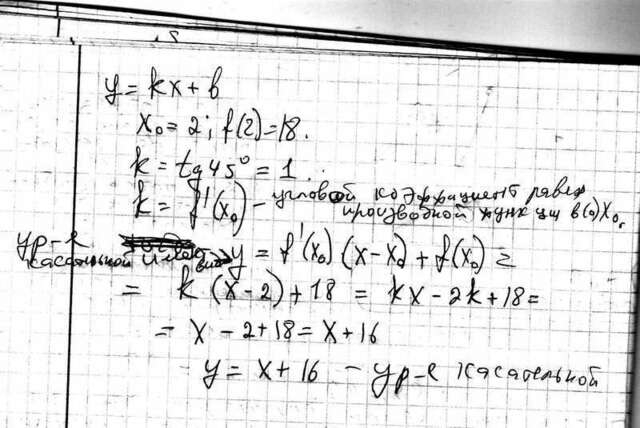 y = kx + b
x₀ = 2; f(2) = 18.
k = tg 45° = 1.
k = f'(x₀) - угловой коэффициент равен
производной функции в (·) x₀.
ур-е касательной имеет вид y = f'(x₀)(x-x₀) + f(x₀) =
= k(x-2)+18 = kx - 2k + 18 =
= x - 2 + 18 = x + 16
y = x + 16 - ур-е касательной